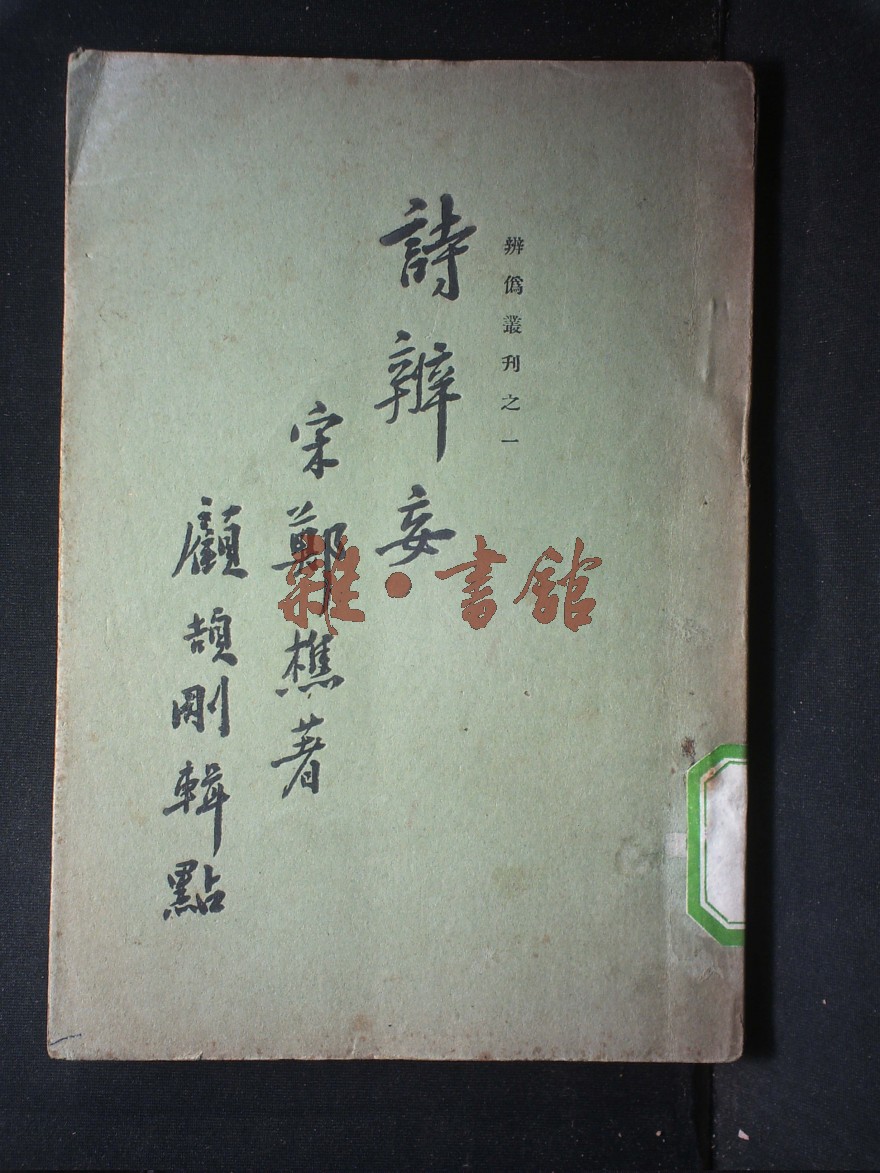 辨僞叢刊之一
詩辨妄
宋鄭樵著
顧頡剛輯點
雜·書館